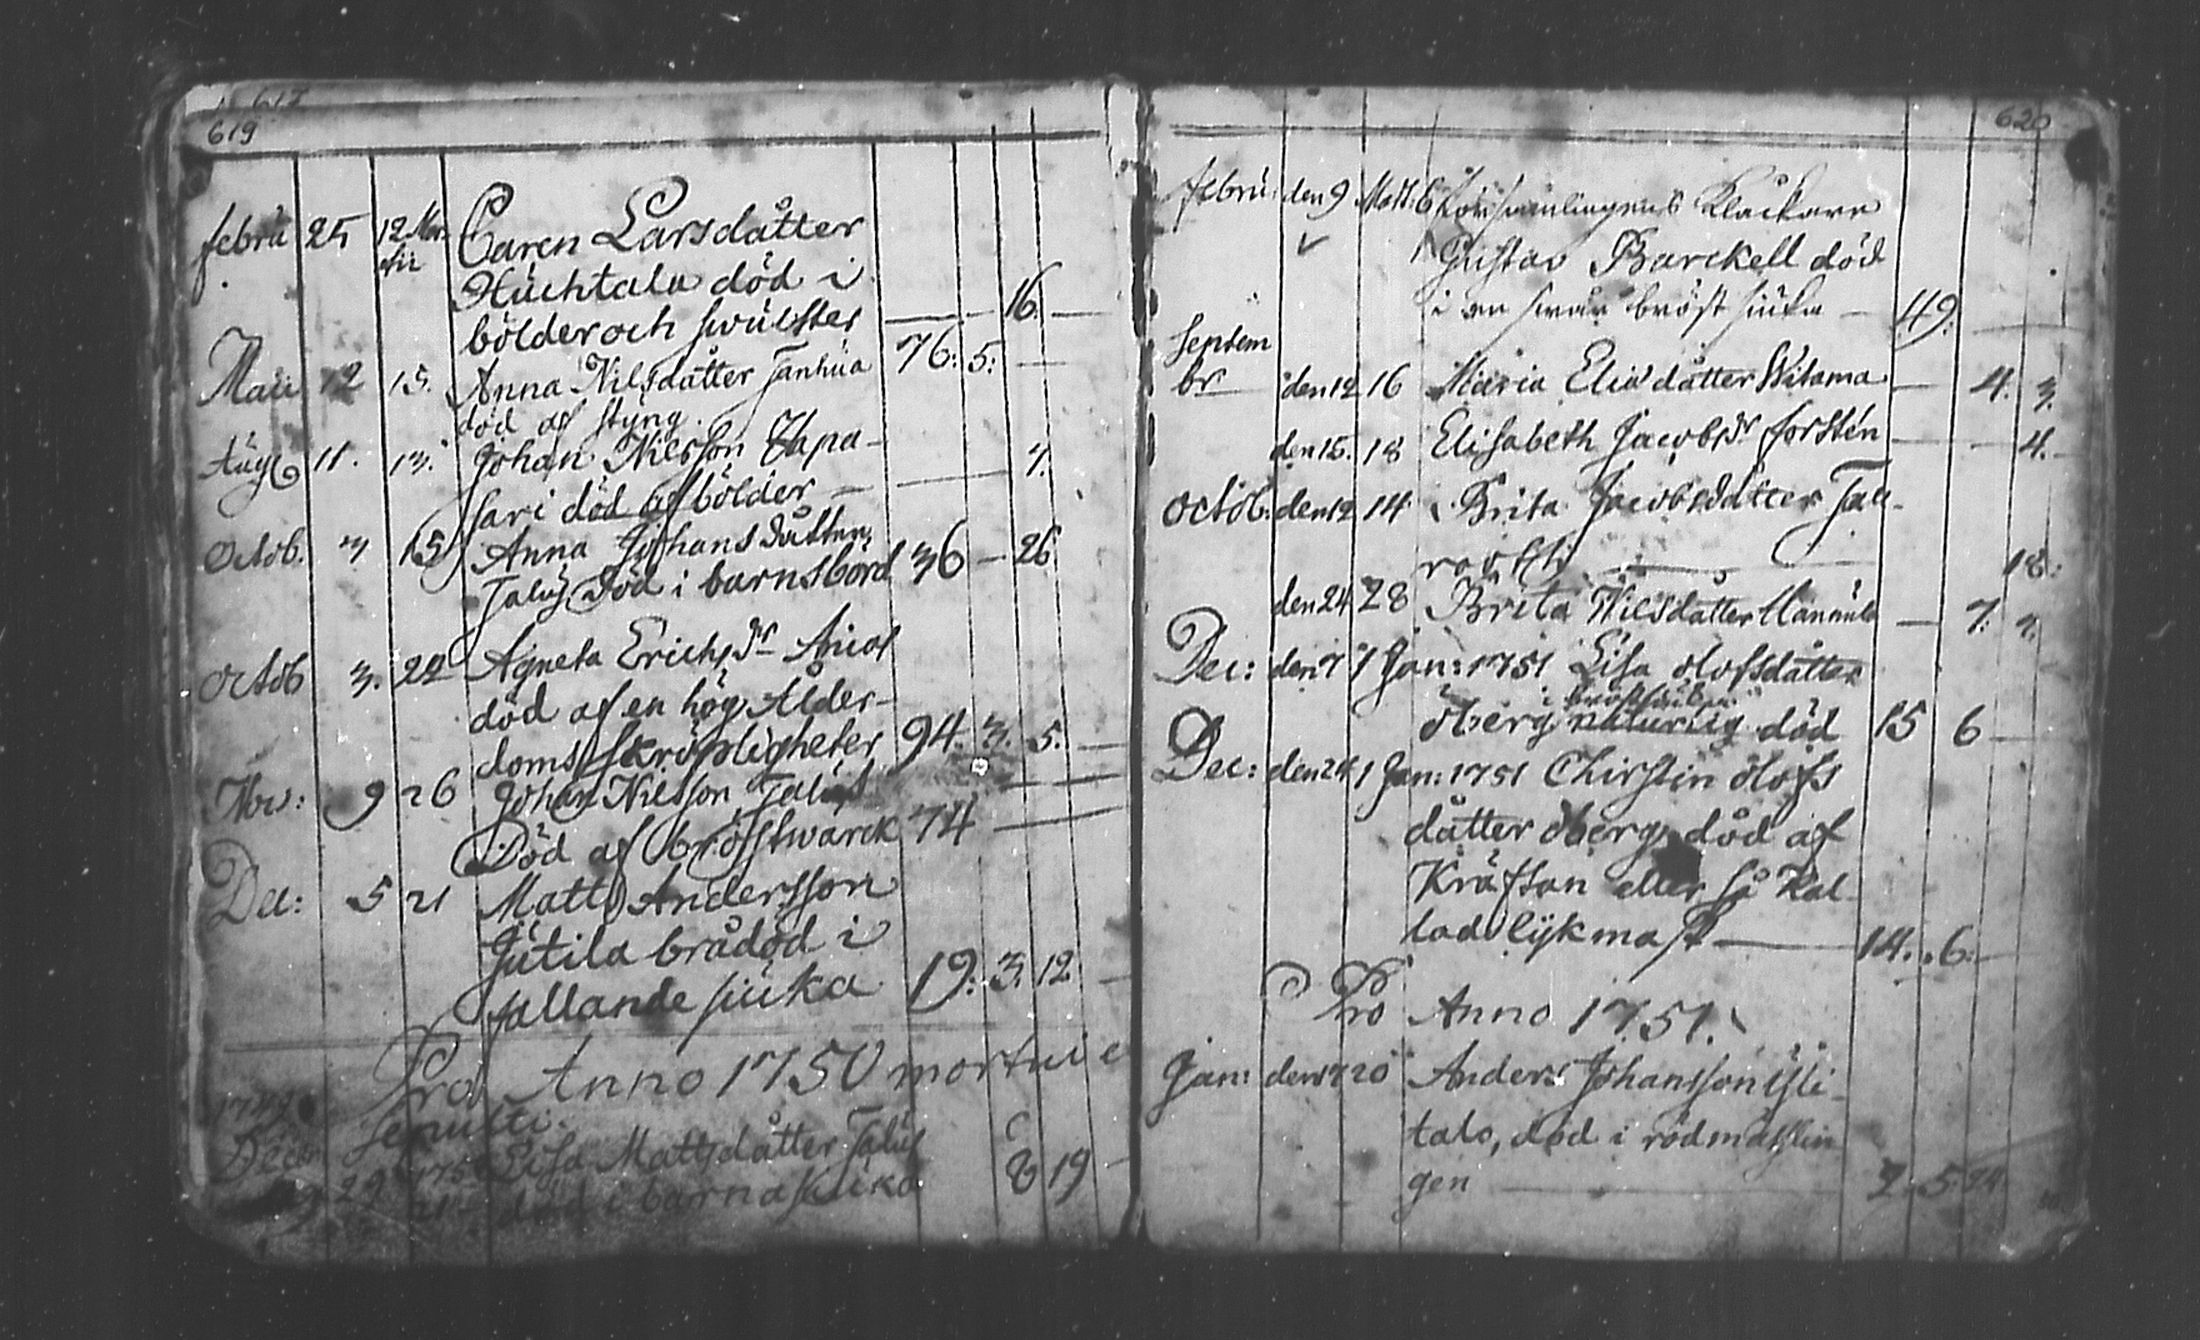 619
febru 25 12 Mar- Caren Larsdåtter
tii Huchtala död i
bölder och swulster — — 16. —
Maii 12 15. Anna Nilsdåtter Tanhua 76: 5: —
död af styng.
Aug 11. 13. Johan Nilsson Vapa-
sari död af bölder — — 7.
Octob. 3 15 Anna Johansdåtter
Talus död i barnsbörd 36 — 26.
Octob 3. 22 Agneta Erichsdr
död af en hög Ålder-
doms skröpligheter 94. 3. 5. —
Nov: 9 26 Johan Nilsson Talus
Död af bröstwärck 74 —
Dec: 5 21 Matts Andersson
Jutila brådöd i
fallande siuka 19: 3. 12 —
Pro Anno 1750 mortui e
1749 sepulti.
Decem 29 1750 Lisa Mattsdåtter Talus
21 död i barnasiuka 8 19 —
620
febru: den 9 Mart: 6 Församlingens Klåckare
Gustav Barckell död
i en swår bröst siuka — 49: —
Septem
br den 12 16 Maria Eliædåtter Witama — 4. 3.
den 15. 18 Elisabeth Jacobsdr Forstén — — 4. —
Octob. den 12 14 Brita Jacobsdåtter
— 18:
den 24 28 Brita Nilsdåtter — 7. 7.
Dec: den 7 1 Jan: 1751 Lisa Olofsdåtter
i
Öberg naturlig död 15 6 —
Dec: den 24 1 Jan: 1751 Chirstin Olofs
dåtter Öberg död af
Kräftan eller så Kal
lad lijkmask — 14. 6. —
Pro Anno 1751.
Jan: den 7 20 Anders Johansson Yli-
talo, död i rödmässlin
gen — 2. 5. 24.